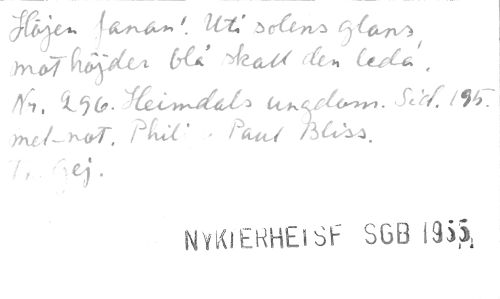 Höjen fanan! Uti solens glans
mot höjder blå skall den leda!
Nr. 296. Heimdals ungdom. Sid. 195.
met-not. Phil Paul Bliss.
Gej.
NYKTERHETSF SGB 1955.